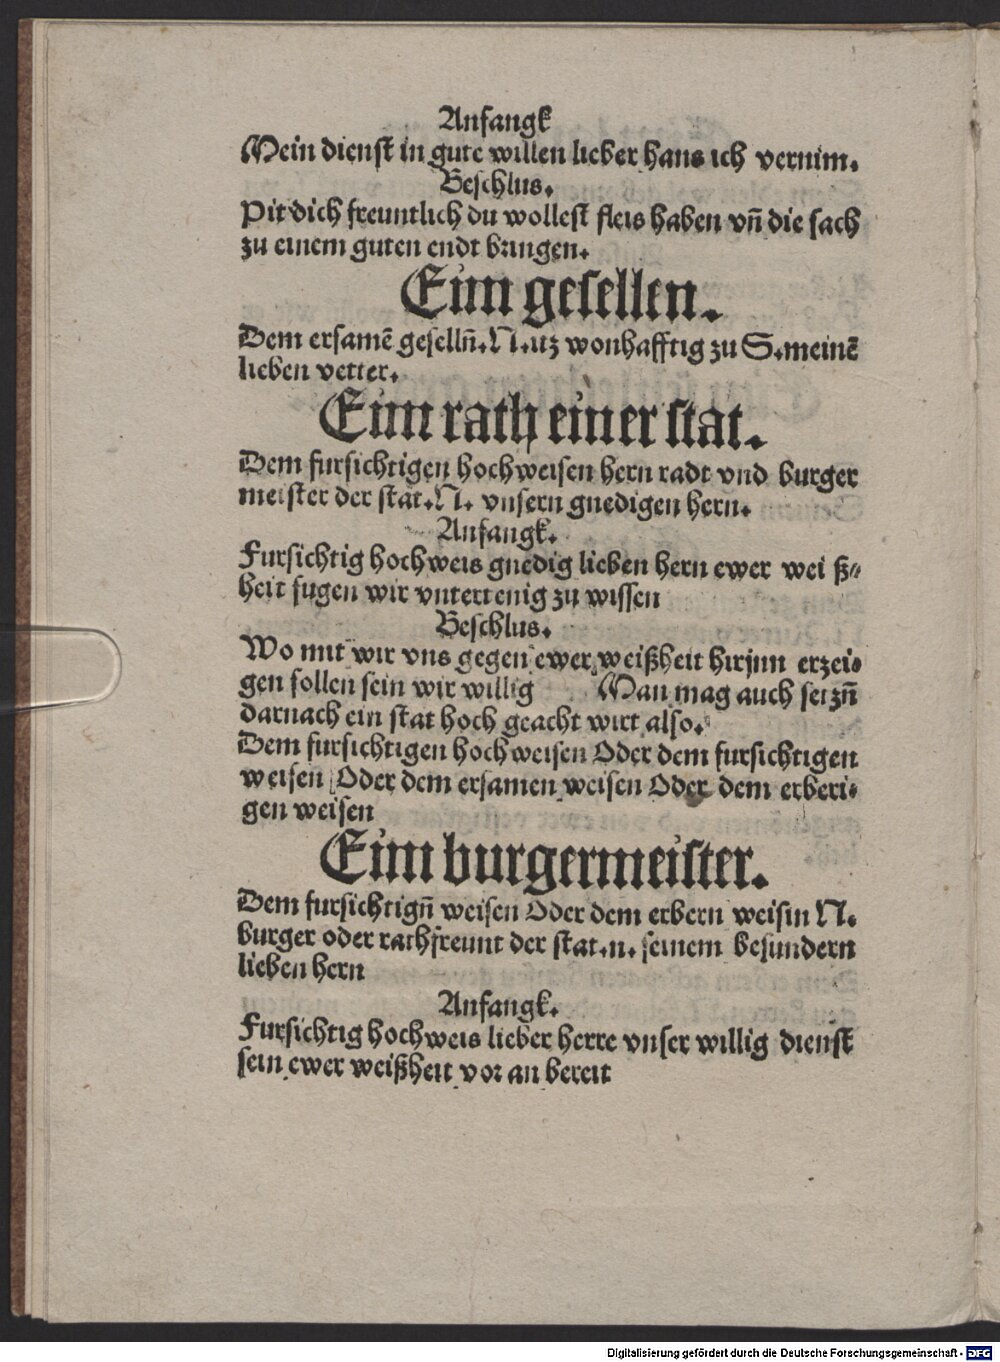 Anfangk
Mein dienst in gute willen lieber hans ich vernim.
Beschlus.
Pit dich freuntlich du wollest fleis haben vn̄ die sach
zu einem guten endt bringen.
Eim gesellen.
Dem ersamē geselln̄. N. itz wonhafftig zu S. meinē
lieben vetter.
Eim rath einer stat.
Dem fursichtigen hochweisen hern radt vnd burger
meister der stat. N. vnsern gnedigen hern.
Anfangk.
Fursichtig hochweis gnedig lieben hern ewer wei ß⸗
heit fugen wir vntertenig zu wissen
Beschlus.
Wo mit wir vns gegen ewer weißheit hirjnn erzei⸗
gen sollen sein wir willig Man mag auch setzn̄
darnach ein stat hoch geacht wirt also.
Dem fursichtigen hochweisen Oder dem fursichtigen
weisen Oder dem ersamen weisen Oder dem erberi⸗
gen weisen
Eim burgermeister.
Dem fursichtign̄ weisen Oder dem erbern weisin N.
burger oder rathfreunt der stat. n. seinem besundern
lieben hern
Anfangk.
Fursichtig hochweis lieber herre vnser willig dienst
sein ewer weißheit vor an bereit
Digitalisierung gefördert durch die Deutsche Forschungsgemeinschaft - DFG